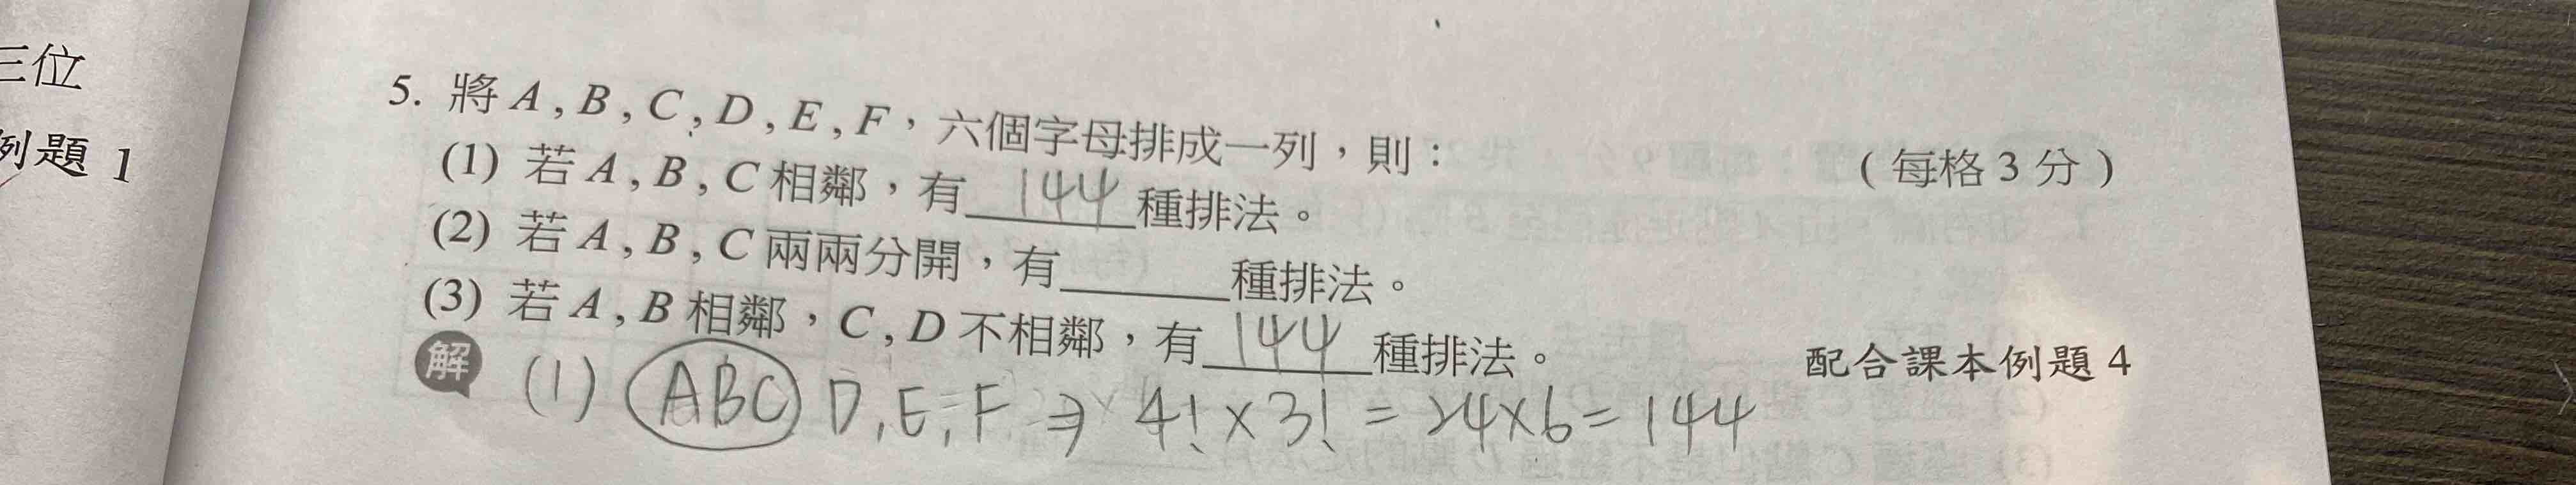 三位
例題 1
5. 將 A , B , C , D , E , F，六個字母排成一列，則：
(每格 3 分)
(1) 若 A , B , C 相鄰，有 144 種排法。
(2) 若 A , B , C 兩兩分開，有______種排法。
(3) 若 A , B 相鄰，C , D 不相鄰，有 144 種排法。
配合課本例題 4
解 (1) ABC D, E, F ⇒ 4! × 3! = 24×6 = 144